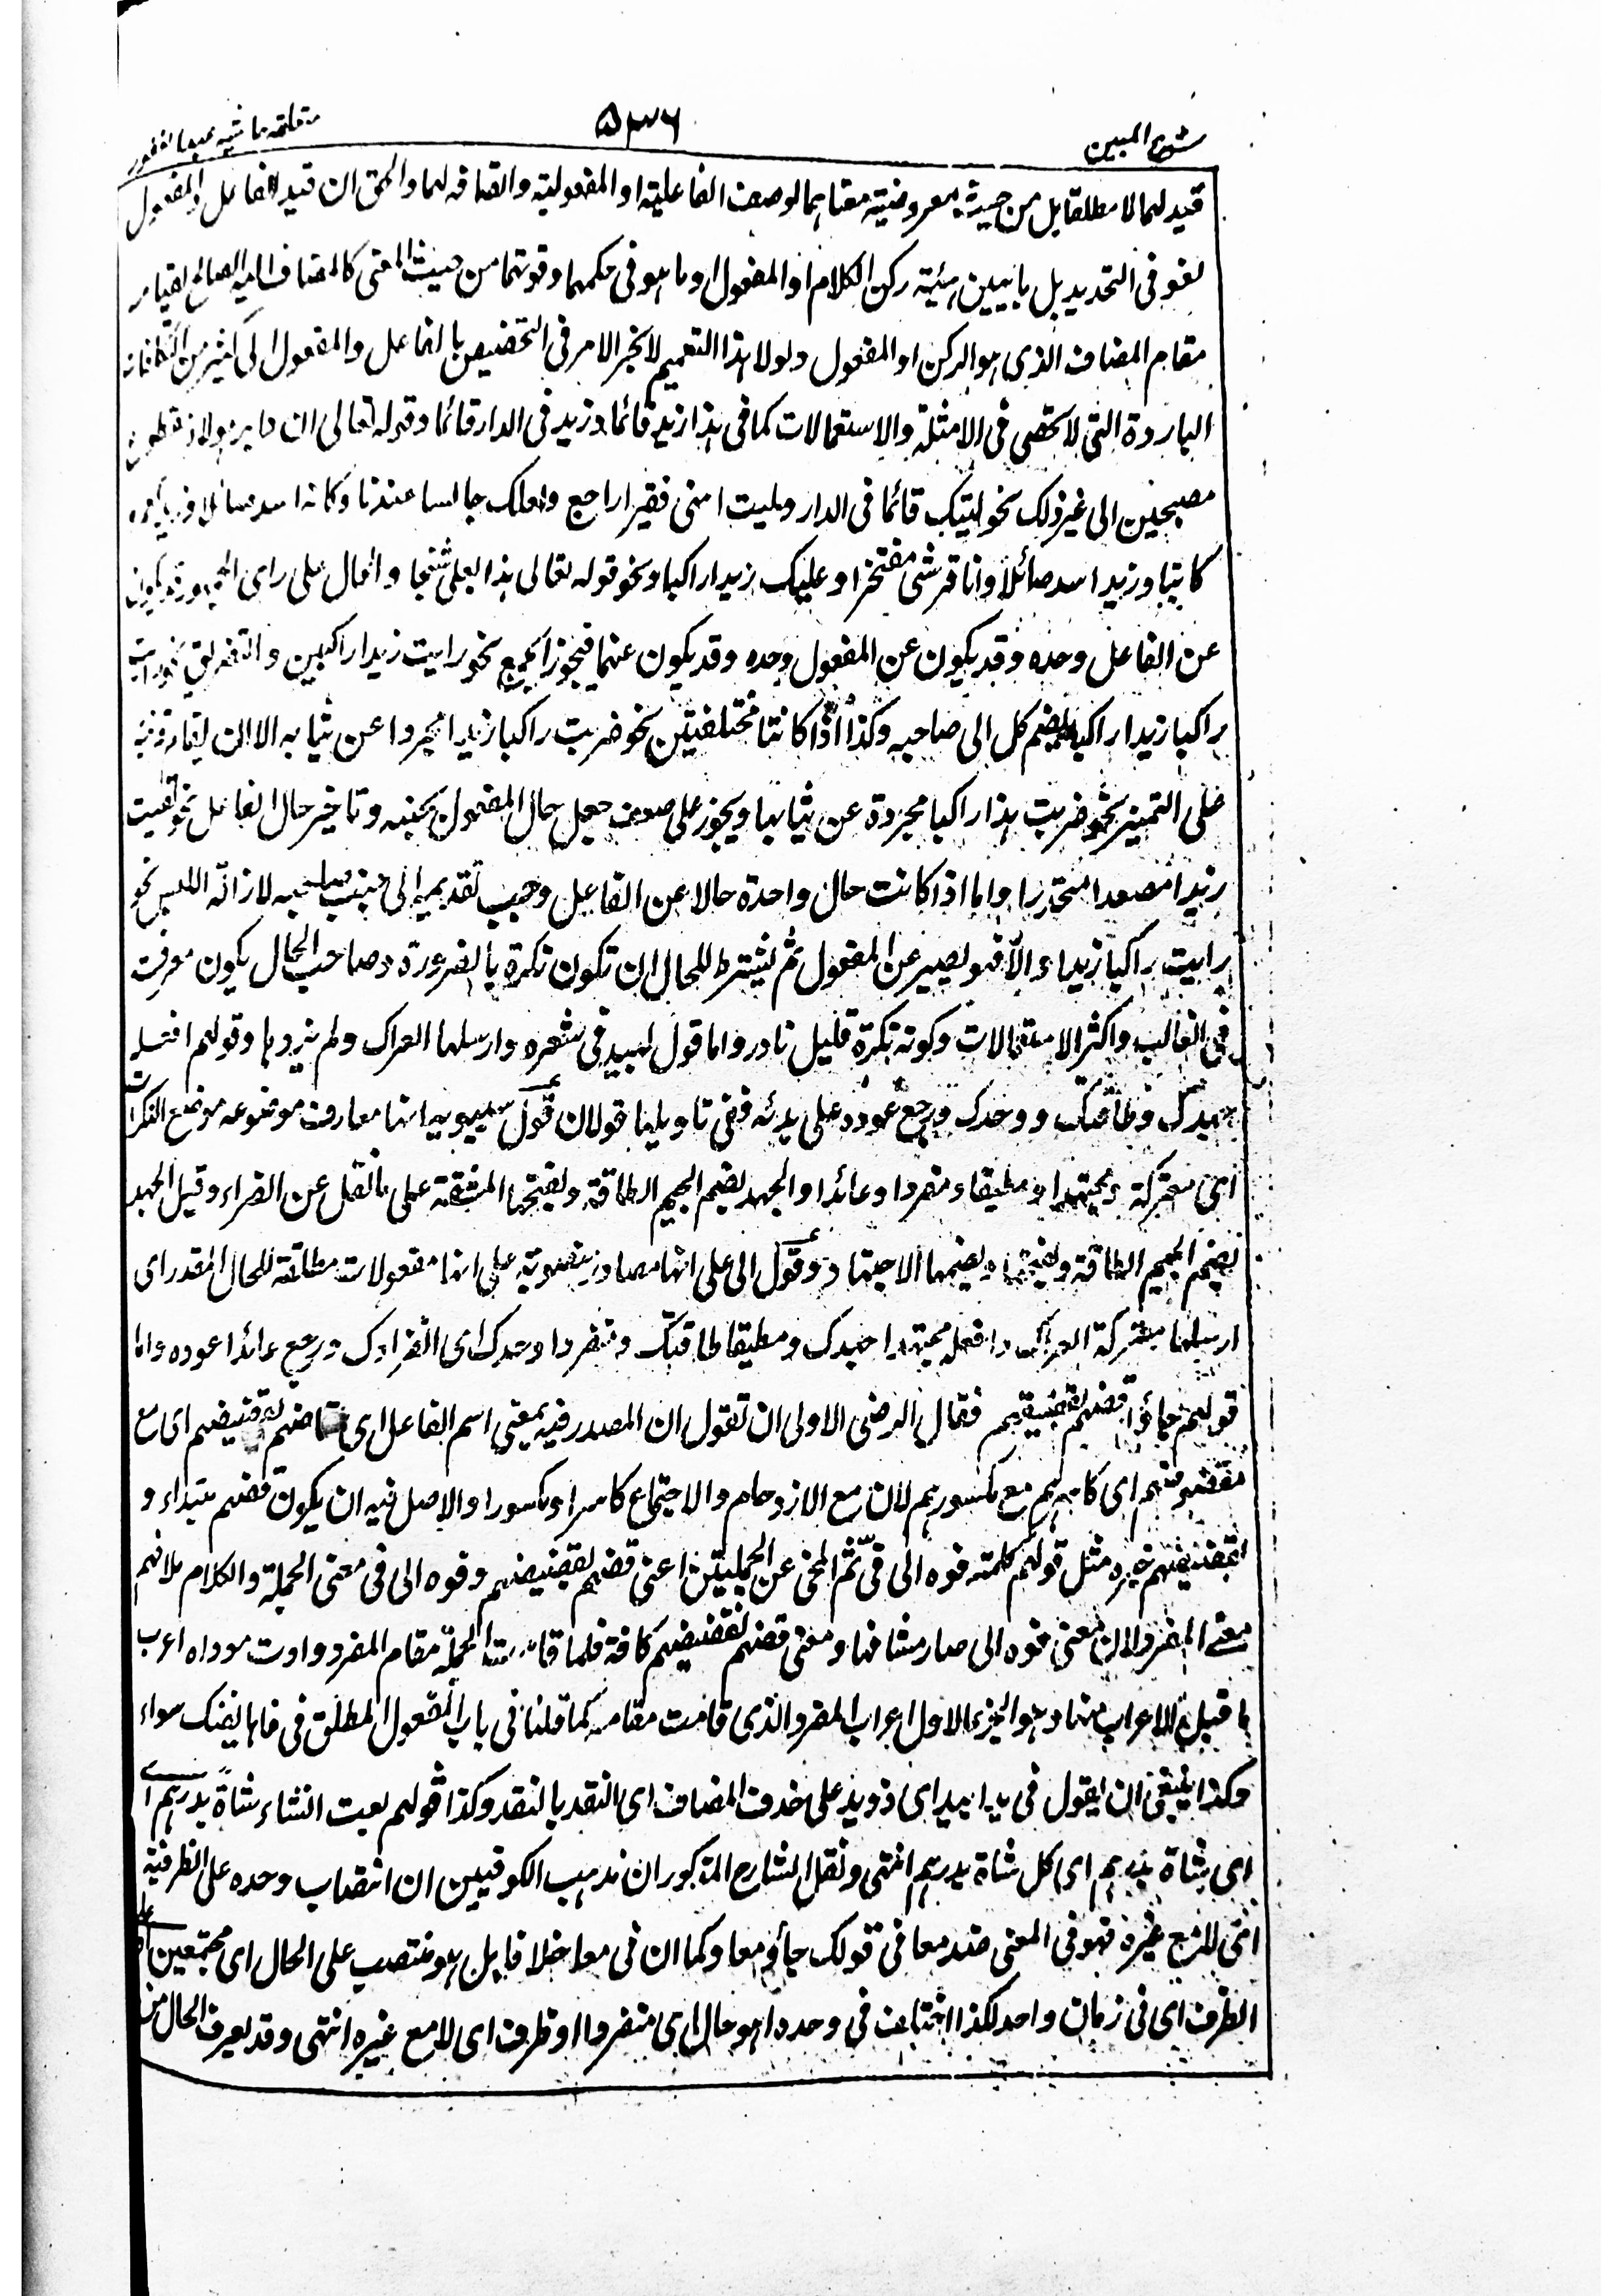 شرح المبين
۵۳۶
متعلقه حاشيه عبد الغفور
قيد لهما لا مطلقا بل من حيث معروضية معناهما لوصف الفاعلية او المفعولية والصافه لهما والحق ان قيد الفاعل والمفعول
لغو فى التحديد بل ما يبين هيئة ركن الكلام او المفعول او ما هو فى حكمهما وقوتهما من حيث المعنى كالمضاف اليه الصالح لقيامه
مقام المضاف الذى هو الركن او المفعول ولولا هذا التعميم لانجر الامر فى التخصيص بالفاعل والمفعول الى كثير من التكلفات
الباردة التى لا تحصى فى الامثلة والاستعمالات كما فى هذا زيد قائما وزيد فى الدار قائما وقوله تعالى ان دابر هولاء مقطوع
مصبحين الى غير ذلك نحو ليتك قائما فى الدار وليت امنى فقيرا راجع ولعلك جالسا عندنا وكانه اسد صائلا
كاتبا وزيد اسد صائلا وانا قرشى مفتخرا وعليك زيدا راكبا ونحو قوله تعالى هذا بعلى شيخا والحال على راى الجمهور قد يكون
عن الفاعل وحده وقد يكون عن المفعول وحده وقد يكون عنهما فيجوز الجمع نحو رايت زيدا راكبين والتفريق نحو رايت
راكبا زيدا راكبا ليضم كل الى صاحبه وكذا اذا كانتا مختلفتين نحو ضربت راكبا زيدا مجردا عن ثيابه الا ان لقيام قرينة
على التميز نحو ضربت هذا راكبا مجردة عن ثيابها ويجوز على ضعف جعل حال المفعول بجنبه وتاخير حال الفاعل نحو لقيت
زيدا مصعدا منحدرا واما اذا كانت حال واحدة حالا عن الفاعل وجب تقديمه الى جنب صاحبه لازالة اللبس نحو
رايت راكبا زيدا والا فهو يصير عن المفعول ثم يشترط للحال ان تكون نكرة بالضرورة وصاحب الحال يكون معرفة
فى الغالب واكثر الاستعمالات وكونه نكرة قليل نادر واما قول لبيد فى شعره وارسلها العراك ولم يذدها وقولهم افعله
جهدك وطاقتك ووحدك ورجع عوده على بدئه ففى تاويلها قولان قول سيبويه انها معارف موضوعه موضع النكرات
اى معتركة ومجتهدا ومطيقا ومنفردا وعائدا والجهد بضم الجيم الطاقة وبفتحها المشقة على ما نقل عن الفراء وقيل الجهد
بضم الجيم الطاقة وبفتحها وبضمها الاجتهاد وقول ابى على انها مصادر منصوبة على انها مفعولات مطلقة للحال المقدر اى
ارسلها معتركة العراك وافعله مجتهدا جهدك ومطيقا طاقتك ومنفردا وحدك اى انفرادك ورجع عائدا عوده واما
قولهم جاؤا قضهم بقضيضهم فقال الرضى الاولى ان تقول ان المصدر فيه بمعنى اسم الفاعل اى قاضهم بقضيضهم اى مع
مقضوضهم اى كاسرهم مع مكسورهم لان مع الازدحام والاجتماع كاسرا ومكسورا والاصل فيه ان يكون قضهم مبتداء و
بقضيضهم خبره مثل قولهم كلمته فوه الى فى ثم انمحى عن الجملتين اعنى قضهم بقضيضهم وفوه الى فى معنى الجملة والكلام لما فهم
معنى المفرد لان معنى فوه الى صار مشافها ومعنى قضهم بقضيضهم كافة فلما قامت الجملة مقام المفرد وادت موداه اعرب
ما قبل الاعراب منها وهو الجزء الاول اعراب المفرد الذى قامت مقامه كما قلنا فى باب المفعول المطلق فى فاها لفيك سواء
وكذا ينبغى ان يقول فى يدا بيد اى ذو يد على حذف المضاف اى النقد بالنقد وكذا قولهم بعت الشاء شاة بدرهم
اى شاة بدرهم اى كل شاة بدرهم انتهى ونقل الشارح المذكور ان مذهب الكوفيين ان انتصاب وحده على الظرفية
اى لا مع غيره فهو فى المعنى ضد معا فى قولك جاؤا معا وكما ان فى معا خلافا بل هو منتصب على الحال اى مجتمعين
الظرف اى فى زمان واحد لكذا اختلف فى وحده اهو حال اى منفردا او ظرف اى لا مع غيره انتهى وقد يعرف الحال من